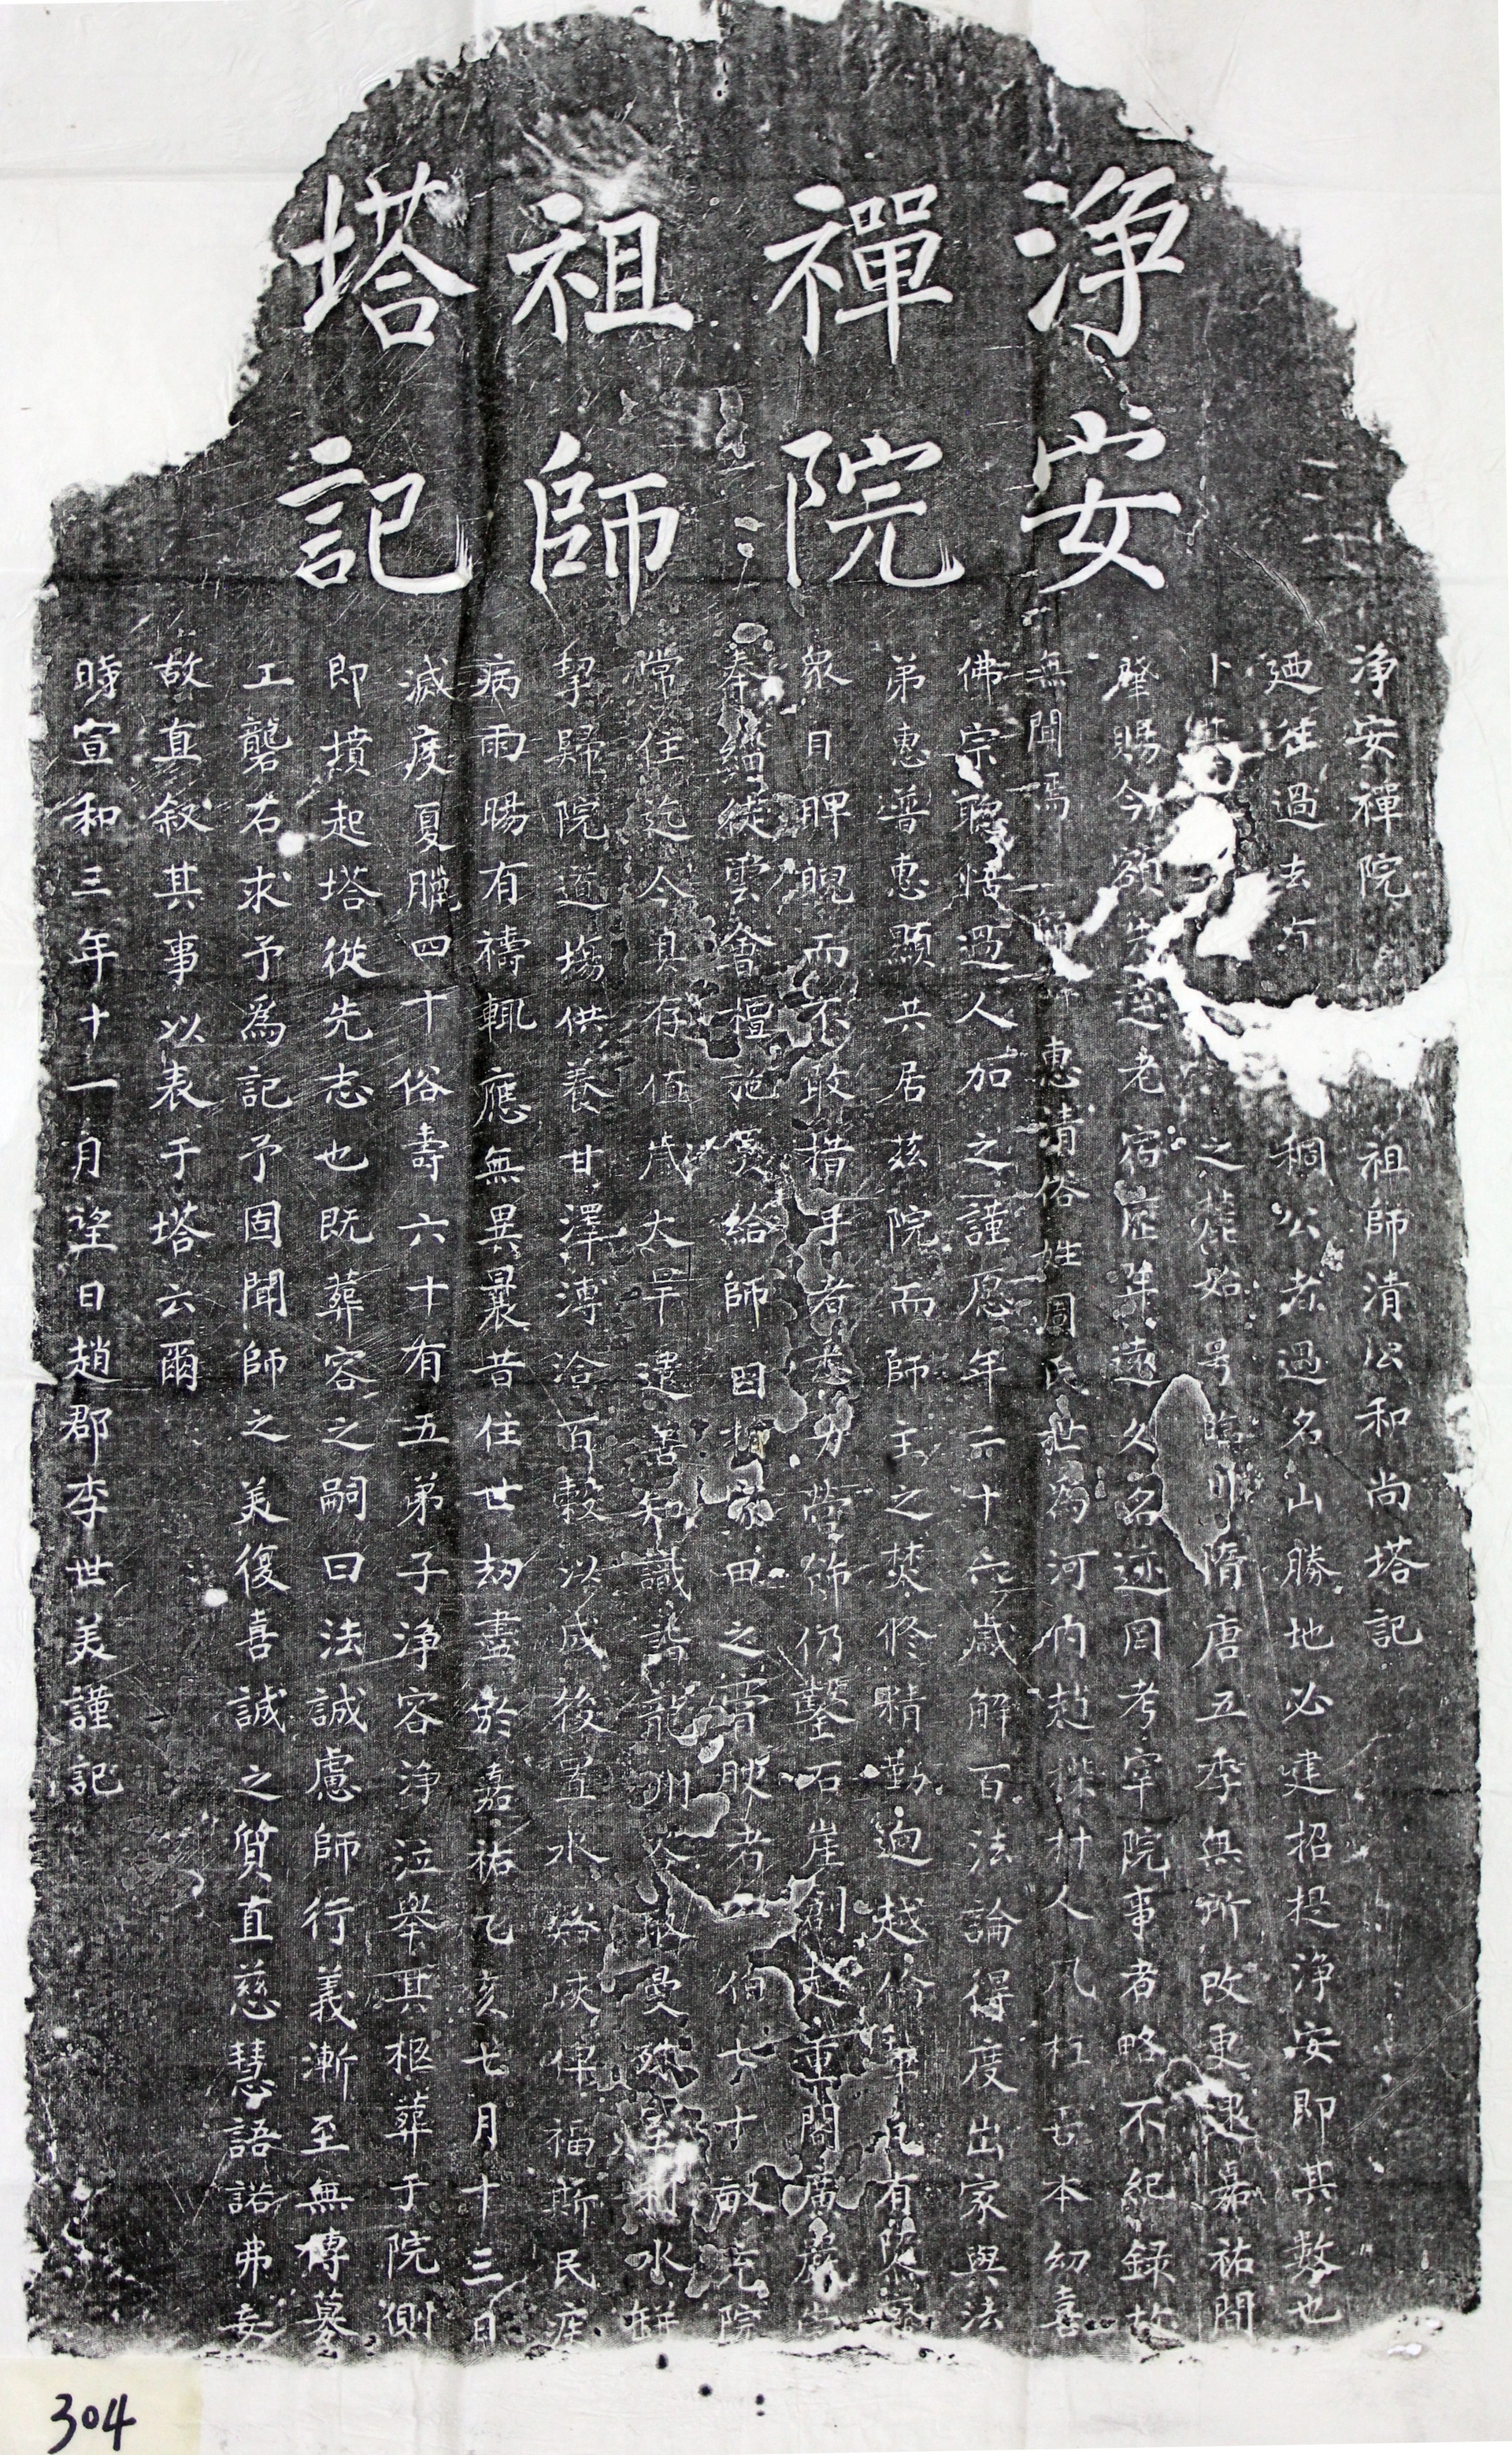 淨安
禪院
祖師
塔記
淨安禪院 祖師清公和尚塔記
廼往過去 稠公者過名山勝地必建招提淨安即其數也
卜 之始号 隋唐五季無所改更逮嘉祐間
肇賜今額 老宿歷年遠久名迹罔考宰院事者略不紀錄故
無聞焉 惠清俗姓 氏世為河內趙 村人凡 本幼喜
佛宗聰悟過人加之謹愿年二十六歲解百法論得度出家與法
弟惠普惠顯共居茲院而師主之焚修精勤迥越 有
眾目睥睨而不敢措手者 勞營飾仍鑿石崖創 重閣廣嚴
奉緇徒雲會檀施 給師因 田之膏腴者 佰七十畝充院
常住迄今具存值歲大旱遣善知識詣龍 水
挈歸院道塲供養甘澤溥洽百穀以成後置水 俾福斯民疾
病雨暘有禱輒應無異曩昔住世劫盡於嘉祐乙亥七月十三日
滅度夏臘四十俗壽六十有五弟子淨容淨泣舉其柩葬于院側
即墳起塔從先志也既葬容之嗣曰法誠慮師行義漸至無傳募
工礱石求予為記予固聞師之美復喜誠之質直慈慧語諾弗妄
故直敘其事以表于塔云爾
時宣和三年十一月望日趙郡李世美謹記
304